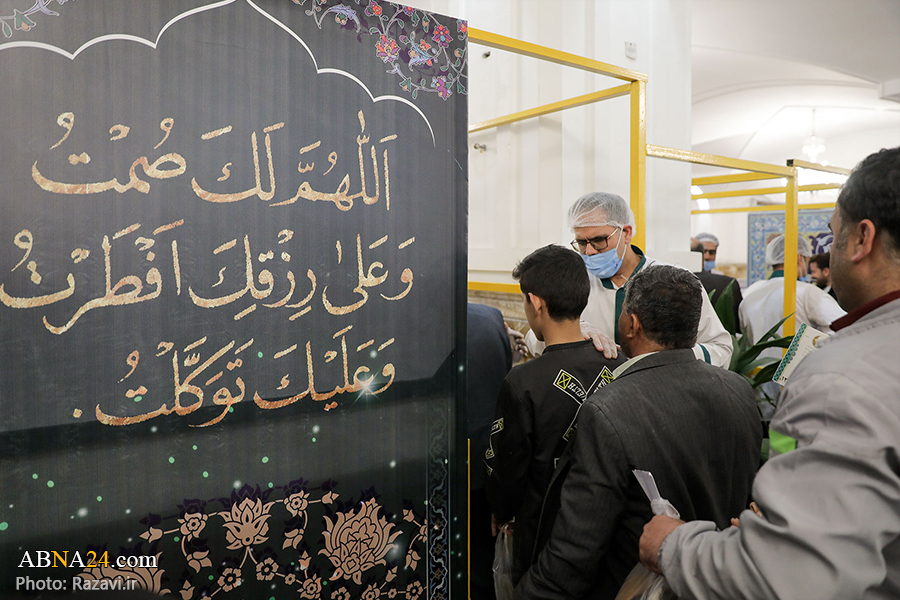 اَللّٰهُمَّ لَكَ صُمْتُ
وَعَلىٰ رِزْقِكَ اَفْطَرْتُ
وَعَلَيْكَ تَوَكَّلْتُ.
ABNA24.com
Photo: Razavi.ir